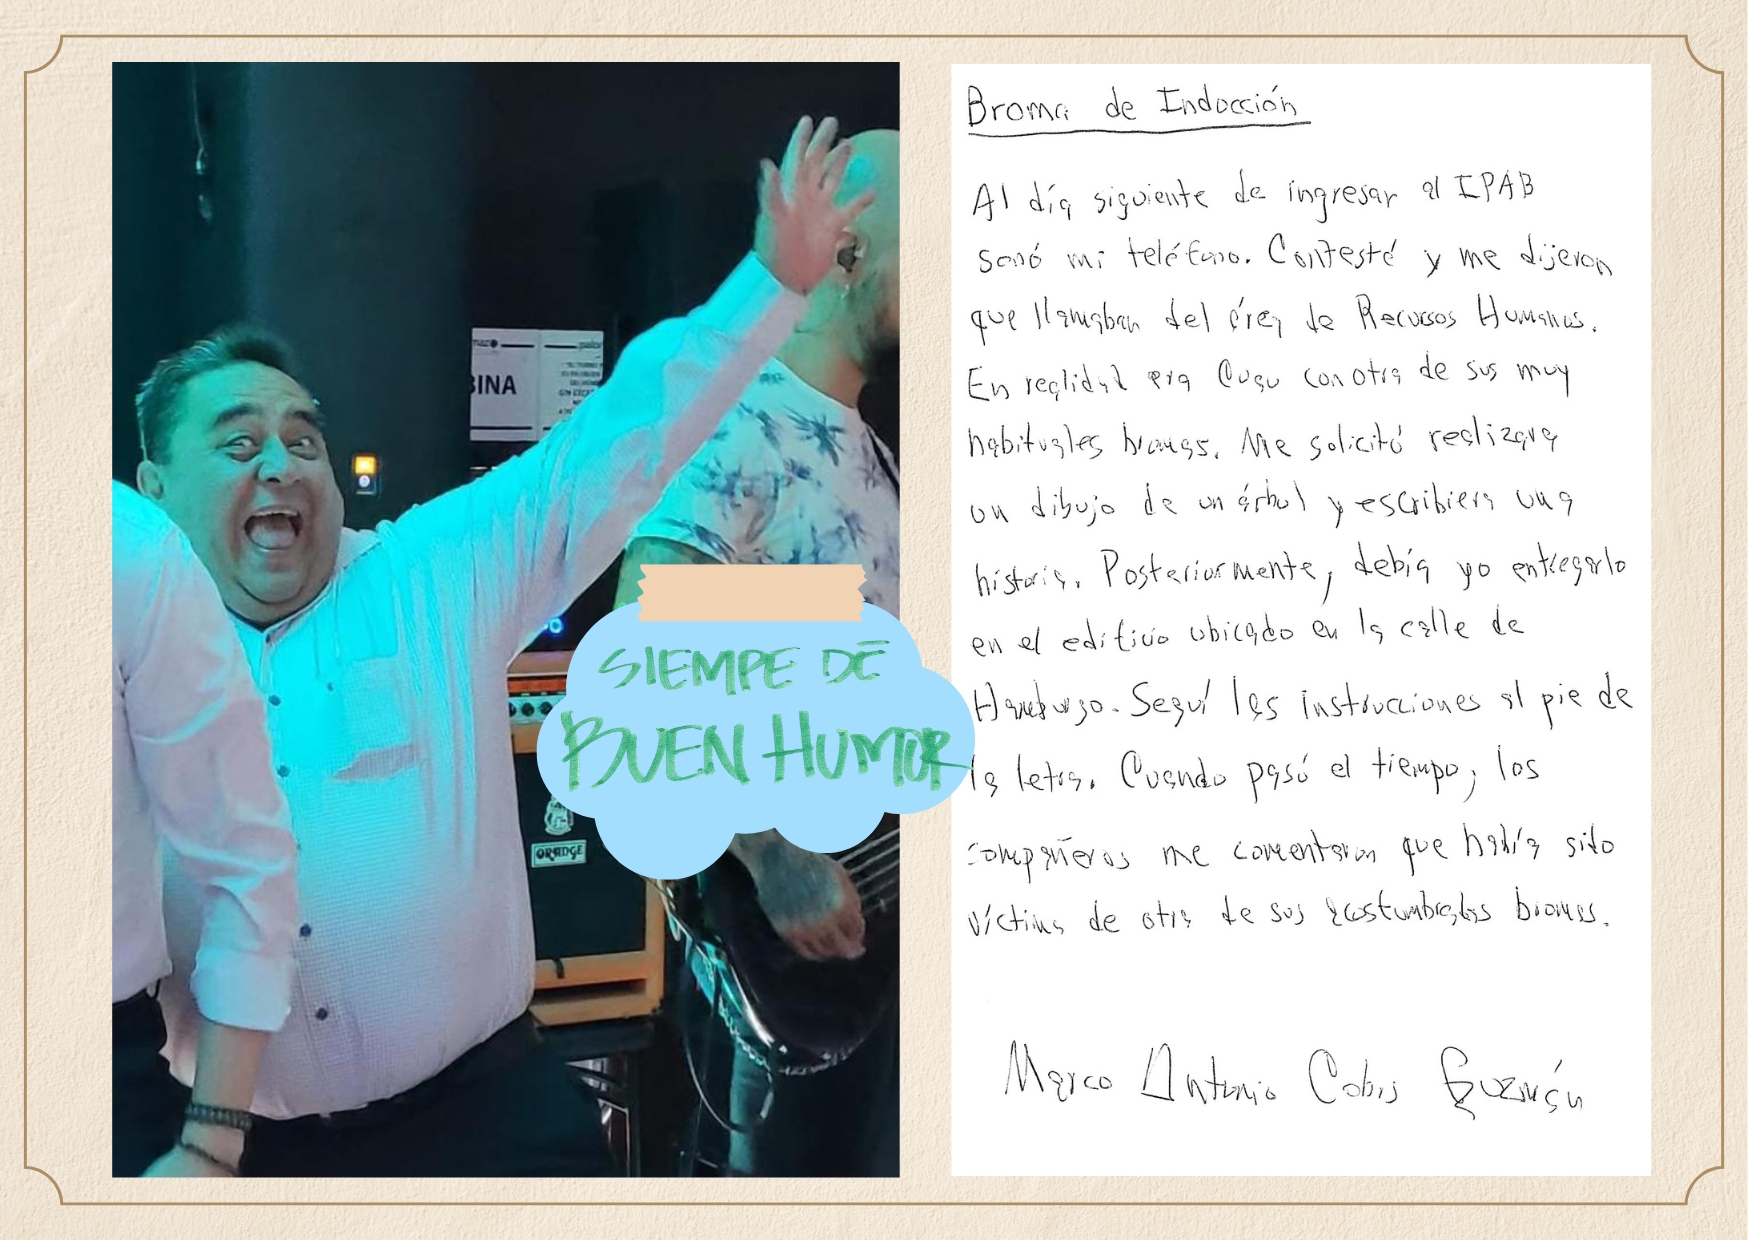 BINA
ORANGE
SIEMPE DE
BUEN HUMOR
Broma de Inducción
Al día siguiente de ingresar al IPAB
sonó mi teléfono. Contesté y me dijeron
que llamaban del área de Recursos Humanos.
En realidad era Cucu con otra de sus muy
habituales bromas. Me solicitó realizara
un dibujo de un árbol y escribiera una
historia. Posteriormente, debía yo entregarlo
en el edificio ubicado en la calle de
Hamburgo. Seguí las instrucciones al pie de
la letra. Cuando pasó el tiempo, los
compañeros me comentaron que había sido
víctima de otra de sus acostumbradas bromas.
Marco Antonio Cobis Guzmán